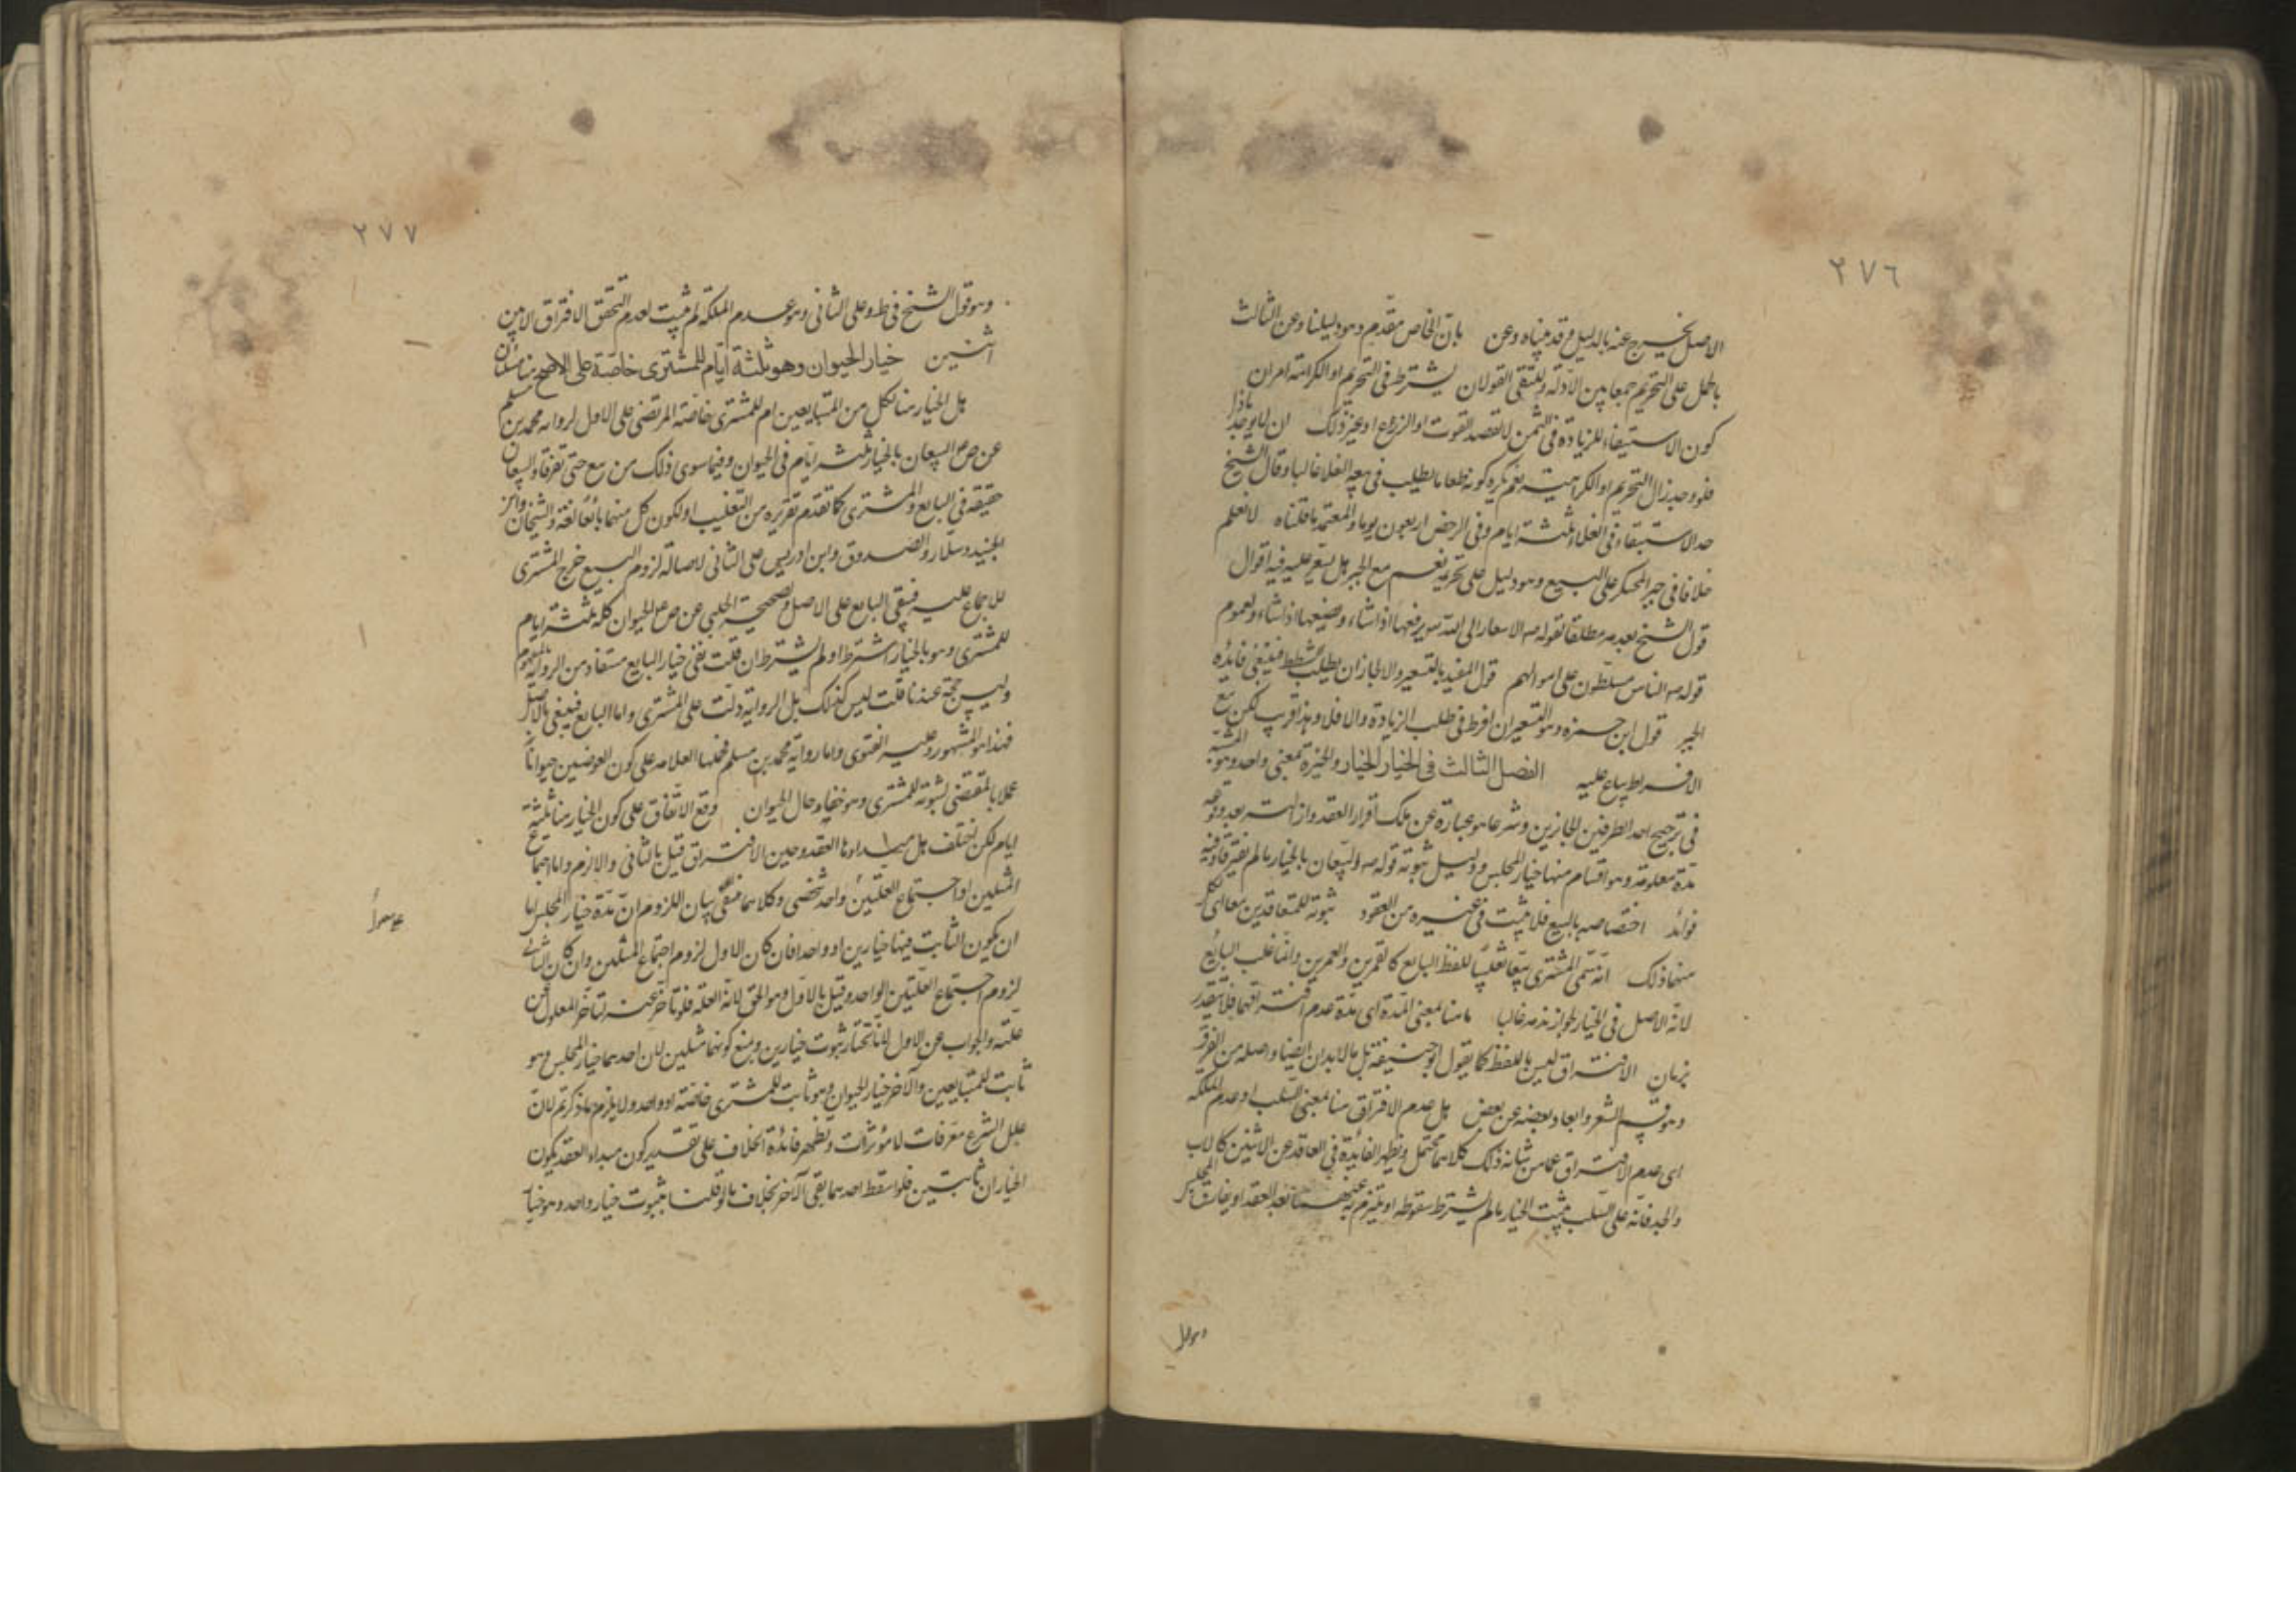 ٢٧٦
الاصل يخرج عنه بالدليل وقد بيناه وعن بان الخاص مقدم وهو دليلنا وعن الثالث
بالحمل على التحريم جمعا بين الادلة ويلتقى القولان يشترط فى التحريم او الكراهة امران
كون الاستبقاء للزيادة فى الثمن لا لقصد القوت او الزرع او غير ذلك ان لا يوجد باذل
فلو وجد زال التحريم او الكراهية نعم يكره كونه طعاما يطلب فى بيعه الغلا غالبا وقال الشيخ
حد الاستبقاء فى الغلاء ثلثة ايام وفى الرخص اربعون يوما والمعتمد ما قلناه لا نعلم
خلافا فى جبر المحتكر على البيع وهو دليل على تحريمه نعم مع الجبر هل يسعر عليه فيه اقوال
قول الشيخ بعدمه مطلقا لقوله ص الاسعار الى الله يرفعها اذا شاء ويضعها اذا شاء ولعموم
قوله ص الناس مسلطون على اموالهم قول المفيد بالتسعير والا لجاز ان يطلب شططا فينبغى فائدة
الجبر قول ابن حمزة وهو التسعير ان افرط فى طلب الزيادة والا فلا وهذا قريب لكن مع
الافراط يباع عليه الفصل الثالث فى الخيار الخيار والخيرة بمعنى واحد وهو المشية
فى ترجيح احد الطرفين الجائزين وشرعا هو عبارة عن ملك اقرار العقد وازالته بعد وقوعه
مدة معلومة وهو اقسام منها خيار المجلس ودليل ثبوته قوله ص البيعان بالخيار ما لم يفترقا وفيه
فوائد اختصاصه بالبيع فلا يثبت فى غيره من العقود ثبوته للمتعاقدين معا اى لكل
منهما ذلك انه سمى المشترى بيعا تغليبا للفظ البايع كالقمرين والعمرين وانما غلب البايع
لانه الاصل فى الخيار لجواز ندمه غالبا ما هنا لمعنى المدة اى مدة عدم افتراقهما فلا يتقدر
بزمان الافتراق ليس باللفظ كما يقول ابو حنيفة بل بالابدان ايضا واصله من الفرق
وهو قسم الشعر وابعاد بعضه عن بعض هل عدم الافتراق هنا بمعنى السلب او عدم الملكة
اى عدم الافتراق عما من شانه ذلك كلاهما محتمل وتظهر الفائدة فى العاقد عن الاثنين كالاب
والجد فانه على السلب يثبت الخيار ما لم يشترط سقوطه او يلتزم به عنهما بعد العقد او يفارق المجلس
وهو قول
٢٧٧
وهو قول الشيخ فى ط وعلى الثانى وهو عدم الملكة لم يثبت لعدم التحقق الافتراق الا من
اثنين خيار الحيوان وهو ثلثة ايام للمشترى خاصة على الاصح هنا مسئلتان
هل الخيار هنا لكل من المتبايعين ام للمشترى خاصة المرتضى على الاول لرواية محمد بن مسلم
عن ص البيعان بالخيار ثلثة ايام فى الحيوان وفيما سوى ذلك من بيع حتى تفرقا والبيعان
حقيقة فى البايع والمشترى كما تقدم تقريره من التغليب او لكون كل منهما بائعا لغة والشيخان وابن
الجنيد وسلار والصدوق وابن ادريس على الثانى لاصالة لزوم البيع خرج المشترى
للاجماع عليه فيبقى البايع على الاصل ولصحيحة الحلبى عن ص الحيوان كله ثلثة ايام
للمشترى وهو بالخيار اشترط او لم يشترط ان قلت نفى خيار البايع مستفاد من الرواية بالمفهوم
وليس حجة عندنا قلت ليس كذلك بل الرواية دلت على المشترى واما البايع فينفى بالاصل
فهذا هو المشهور وعليه الفتوى واما رواية محمد بن مسلم فحملها العلامة على كون العوضين حيوانا
عملا بالمقتضى لثبوته للمشترى وهو خفاء حال الحيوان وقع الاتفاق على كون الخيار هنا ثلثة
ايام لكن اختلف هل مبداؤها العقد او حين الافتراق قيل بالثانى والا لزم واما اجتماع
المثلين او اجتماع العلتين على واحد شخصى وكلاهما منفى بيان اللزوم ان مدة خيار المجلس اما
ان يكون الثابت فيها خيارين او واحدا فان كان الاول لزوم اجتماع المثلين وان كان الثانى
لزوم اجتماع العلتين الواحد وقيل بالاول وهو الحق لانه العلة فلو تاخر عنه لتاخر المعلول عن
علته والجواب عن الاول لانا نختار ثبوت خيارين ونمنع كونهما مثلين لان احدهما خيار المجلس وهو
ثابت للمتبايعين والاخر خيار الحيوان وهو ثابت للمشترى خاصة او واحد ولا يلزم ما ذكرتم لان
علل الشرع معرفات لا مؤثرات وتظهر فائدة الخلاف على تقدير كون مبداه العقد يكون
الخياران ثابتين فلو اسقط احدهما بقى الاخر بخلاف ما لو قلنا بثبوت خيار واحد وهو خيار